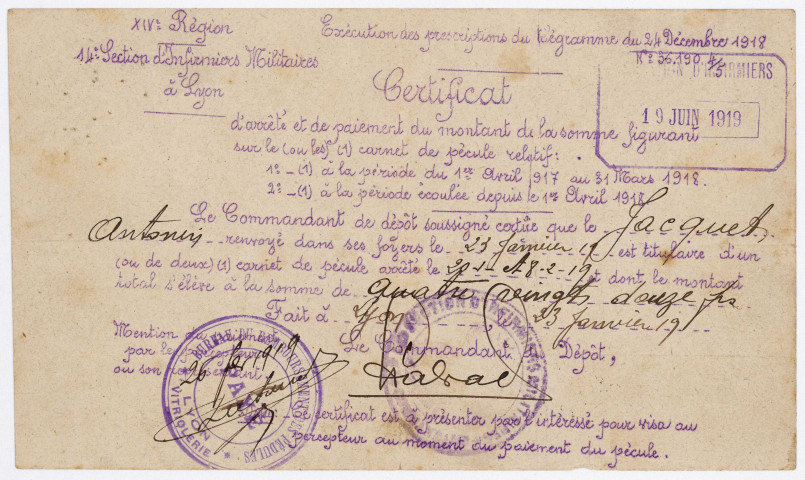 XIVe Région
14e Section d'Infirmiers Militaires
à Lyon
Exécution des prescriptions du télégramme du 24 Décembre 1918
No 36.190 4/5
D'INFIRMIERS
19 JUIN 1919
Certificat
d'arrêté et de paiement du montant de la somme figurant
sur le (ou les) (1) carnet de pécule relatif:
1o _ (1) à la période du 1er Avril 1917 au 31 Mars 1918.
2o _ (1) à la période écoulée depuis le 1er Avril 1918
Le Commandant de dépôt soussigné certifie que le Jacquet
Antonin renvoyé dans ses foyers le 23 Janvier 19 est titulaire d'un
(ou de deux) (1) carnet de pécule arrêté le et dont le montant
total s'élève à la somme de quatre vingt douze frs
Fait à Lyon 23 Janvier 191
Mention de
par le percepteur
ou son
Le Commandant du Dépôt,
LYON
VITRIOLERIE
PÉCULES
certificat est à présenter par l'intéressé pour visa au
percepteur au moment du paiement du pécule.